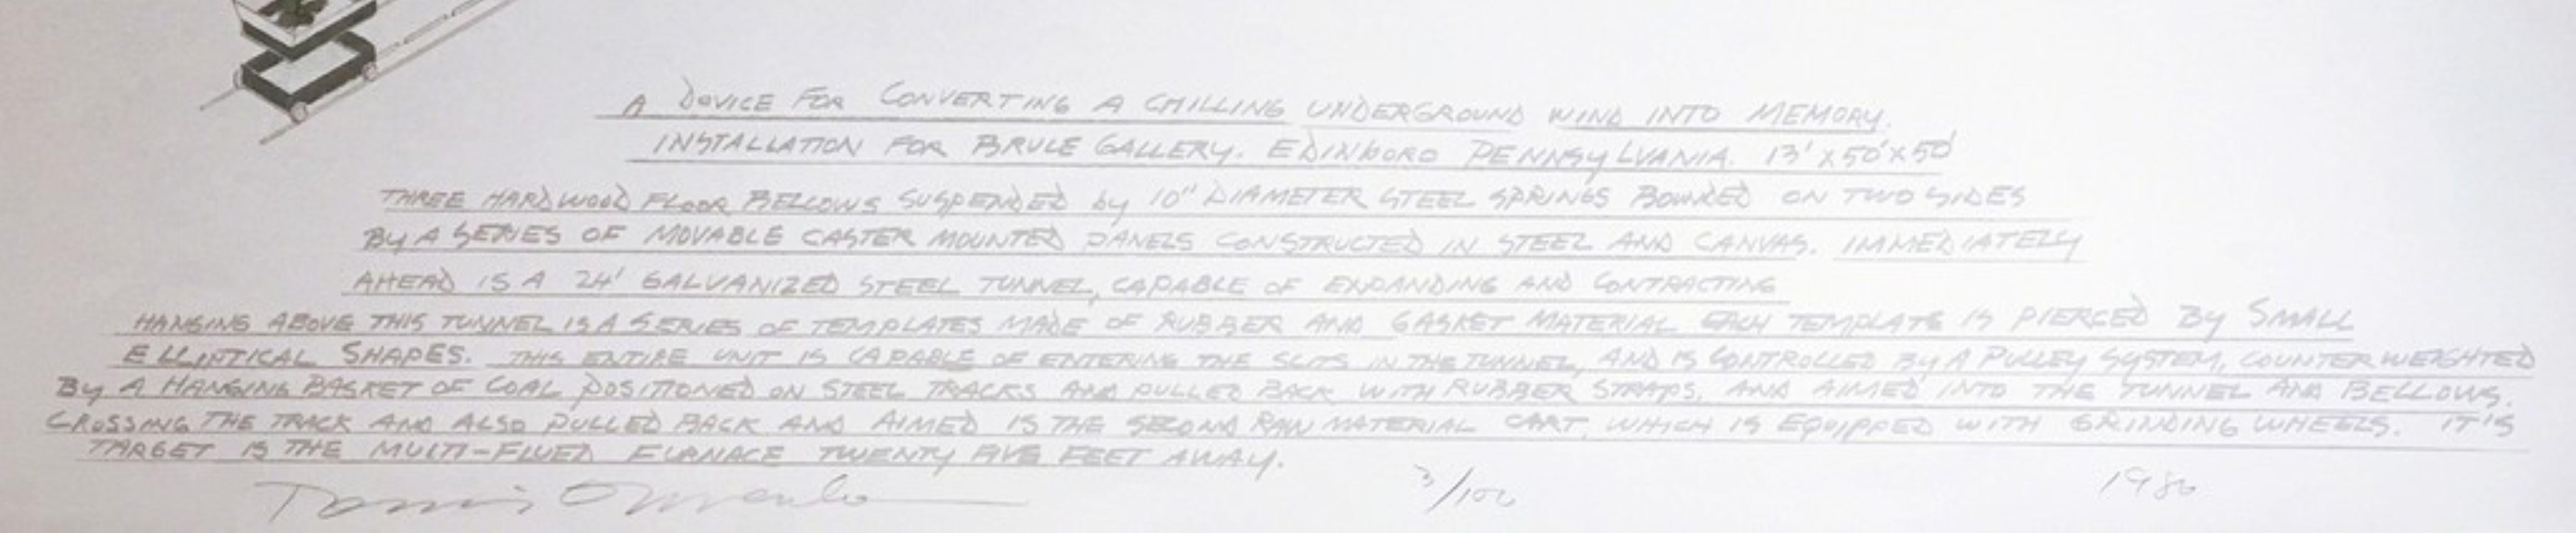 A DEVICE FOR CONVERTING A CHILLING UNDERGROUND WIND INTO MEMORY.
INSTALLATION FOR BRUCE GALLERY. EDINBORO PENNSYLVANIA. 13' X 50' X 50'
THREE HARDWOOD FLOOR BELLOWS SUSPENDED by 10" DIAMETER STEEL SPRINGS BOUNDED ON TWO SIDES
By A SERIES OF MOVABLE CASTER MOUNTED PANELS CONSTRUCTED IN STEEL AND CANVAS. IMMEDIATELY
AHEAD IS A 24' GALVANIZED STEEL TUNNEL, CAPABLE OF EXPANDING AND CONTRACTING
HANGING ABOVE THIS TUNNEL IS A SERIES OF TEMPLATES MADE OF RUBBER AND GASKET MATERIAL EACH TEMPLATE IS PIERCED By SMALL
ELLIPTICAL SHAPES. THIS ENTIRE UNIT IS CAPABLE OF ENTERING THE SLITS IN THE TUNNEL, AND IS CONTROLLED By A PULLEY SYSTEM, COUNTER WEIGHTED
By A HANGING BASKET OF COAL POSITIONED ON STEEL TRACKS AND PULLED BACK WITH RUBBER STRAPS, AND AIMED INTO THE TUNNEL AND BELLOWS.
CROSSING THE TRACK AND ALSO PULLED BACK AND AIMED IS THE SECOND RAW MATERIAL CART, WHICH IS EQUIPPED WITH GRINDING WHEELS. IT'S
TARGET IS THE MULTI-FLUED FURNACE TWENTY FIVE FEET AWAY.
3/100 1986